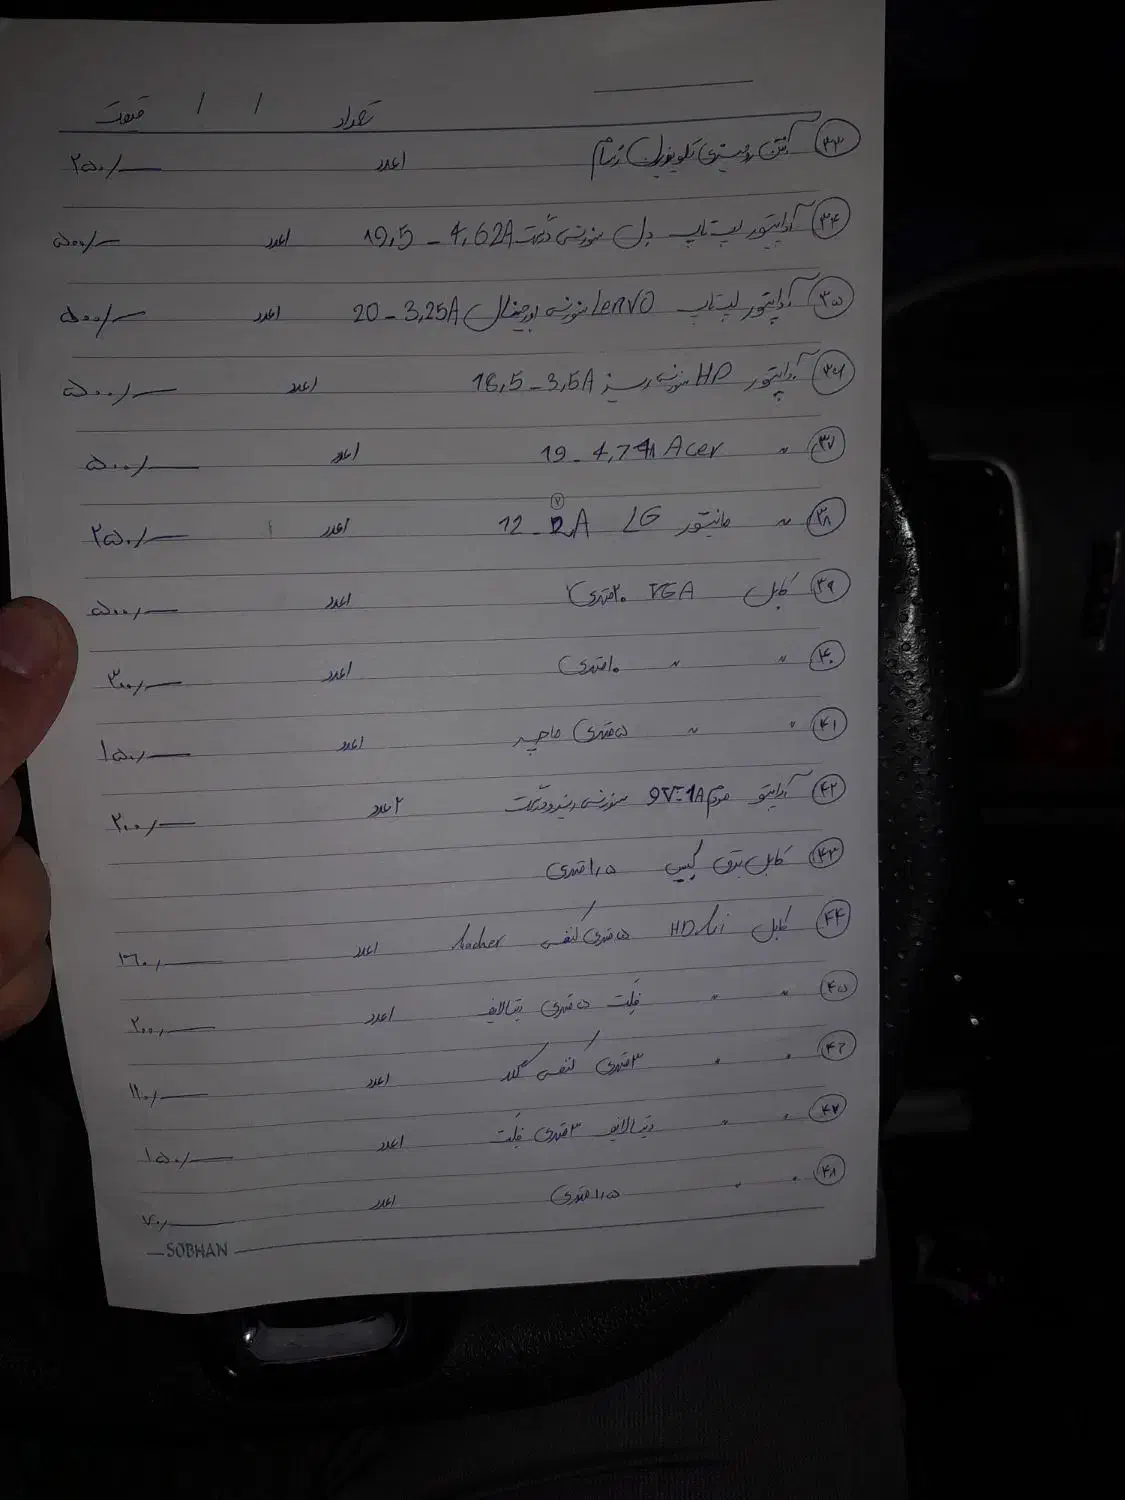 تعداد / / قیمت
۳۳ آنتن رومیزی تلویزیون 1عدد ۲۵۰/—
۳۴ آداپتور لپ تاپ دل سوزنی 19,5 - 4,62A 1عدد ۵۰۰/—
۳۵ آداپتور لپ تاپ LenVO سوزنی اورجینال 20 - 3,25A 1عدد ۵۰۰/—
۳۶ آداپتور HP سوزنی ریز 18,5 - 3,5A 1عدد ۵۰۰/—
۳۷ " Acer 19 - 4,74A 1عدد ۵۰۰/—
۳۸ " مانیتور LG 12 - 2A 1عدد ۲۵۰/—
۳۹ کابل VGA ۲۰متری 1عدد ۵۰۰/—
۴۰ " " ۱۰متری 1عدد ۳۰۰/—
۴۱ " " ۵متری 1عدد ۱۵۰/—
۴۲ آداپتو مودم 9V-1A سوزنی ۲عدد ۲۰۰/—
۴۳ کابل برق کیس ۱٫۵متری
۴۴ کابل HD ۵متری کنفی 1عدد
۴۵ " " فلت ۵متری دیتالایف 1عدد ۲۰۰/—
۴۶ " " ۳متری کنفی گلد 1عدد
۴۷ " " دیتالایف ۳متری فلت 1عدد ۱۵۰/—
۴۸ " " ۱٫۵متری 1عدد ۷۰/—
SOBHAN